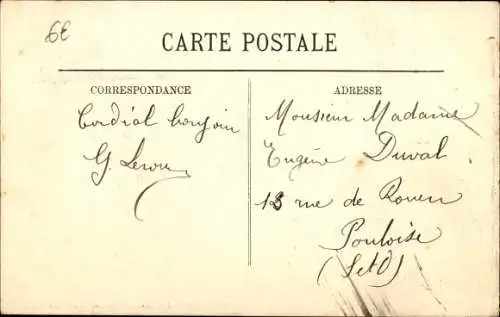 6€
CARTE POSTALE
CORRESPONDANCE
Cordial bonjour
G. Leroy
ADRESSE
Monsieur Madame
Eugène Duval
13 rue de Rouen
Pontoise
(S et O)